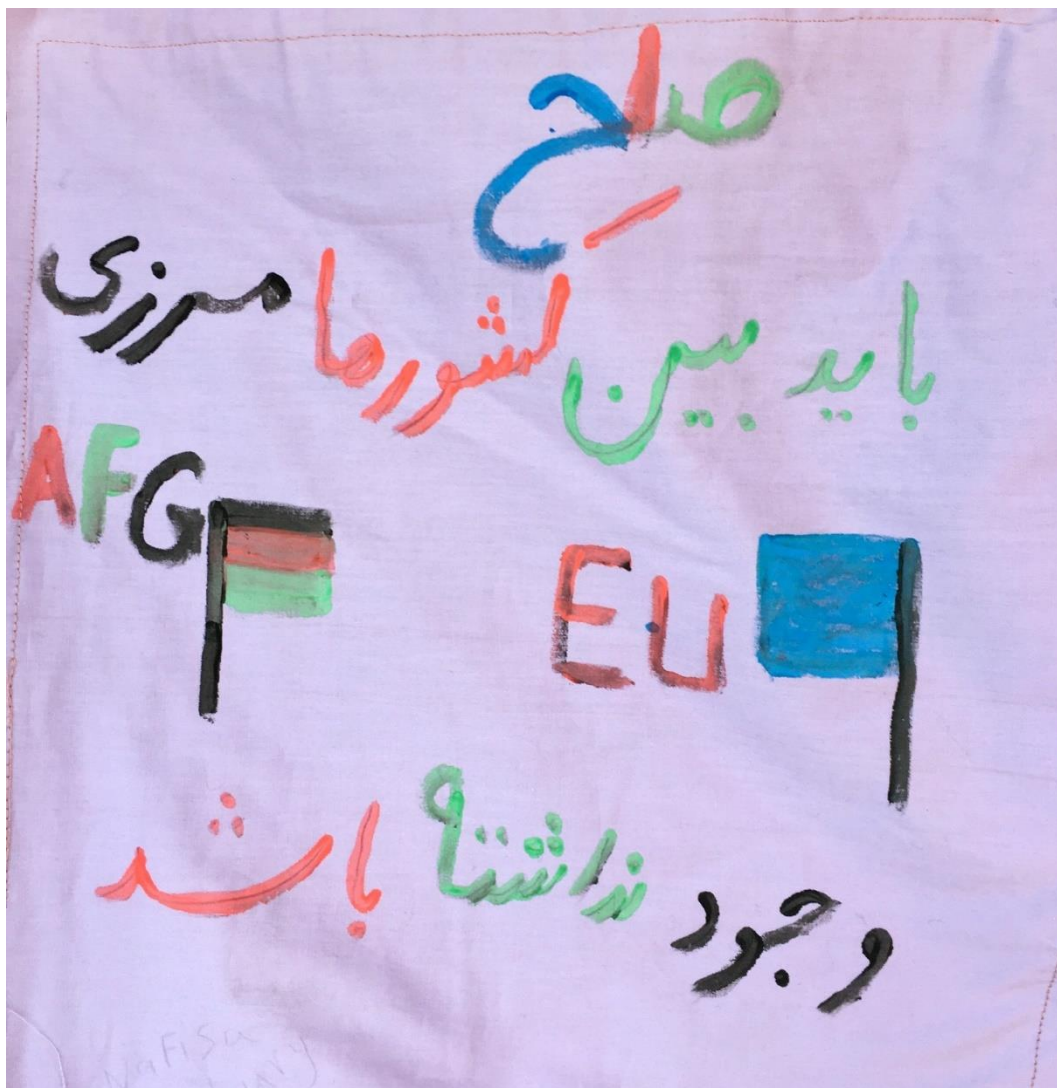 صلح
باید بین کشورها مرزی
AFG EU
وجود نداشته باشد
Nafisa